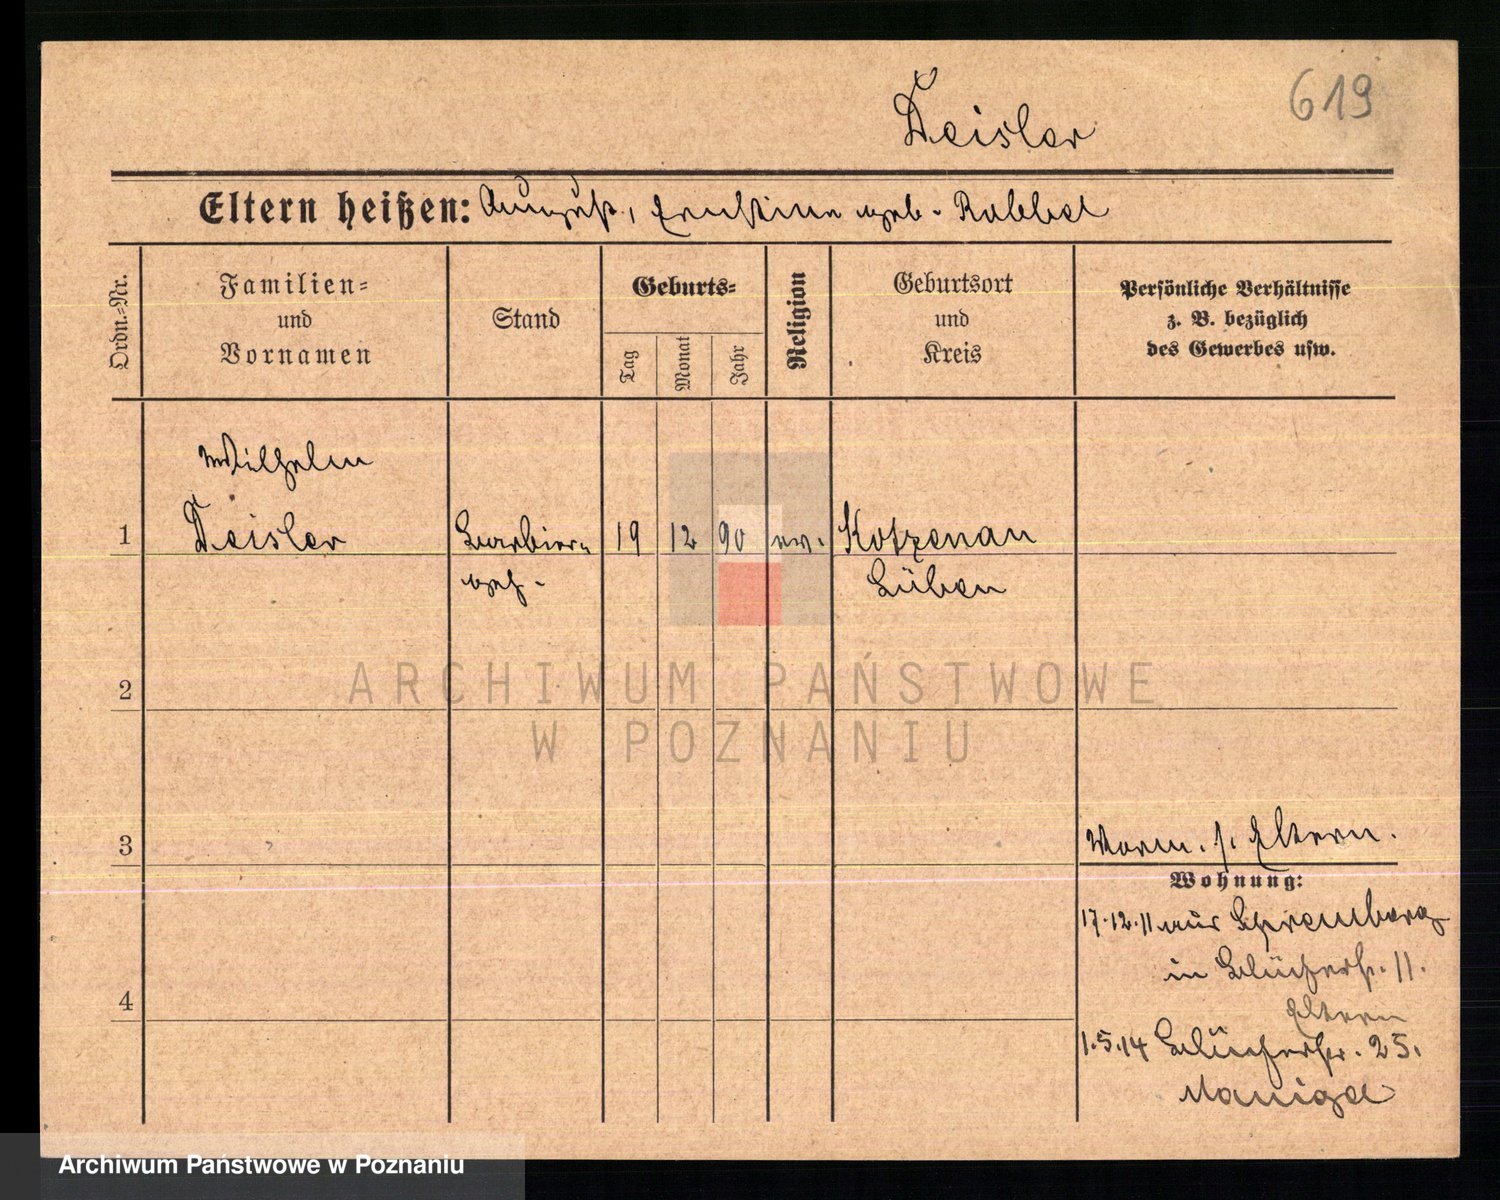 619
Deisler
Eltern heißen: August, Ernstine geb. Rabbel
Ordn.=Nr.
Familien=
und
Vornamen
Stand
Geburts=
Tag
Monat
Jahr
Religion
Geburtsort
und
Kreis
Persönliche Verhältnisse
z. B. bezüglich
des Gewerbes usw.
Wilhelm
1 Deisler Barbier= 19 12 90 ev. Kotzenau
geh. Lüben
2
3
Vorm. s. Eltern.
Wohnung:
17.12.11 aus Spremberg
in Blücherstr. 11.
Eltern
4
1.5.14 Blücherstr. 25.
ARCHIWUM PAŃSTWOWE
W POZNANIU
Archiwum Państwowe w Poznaniu